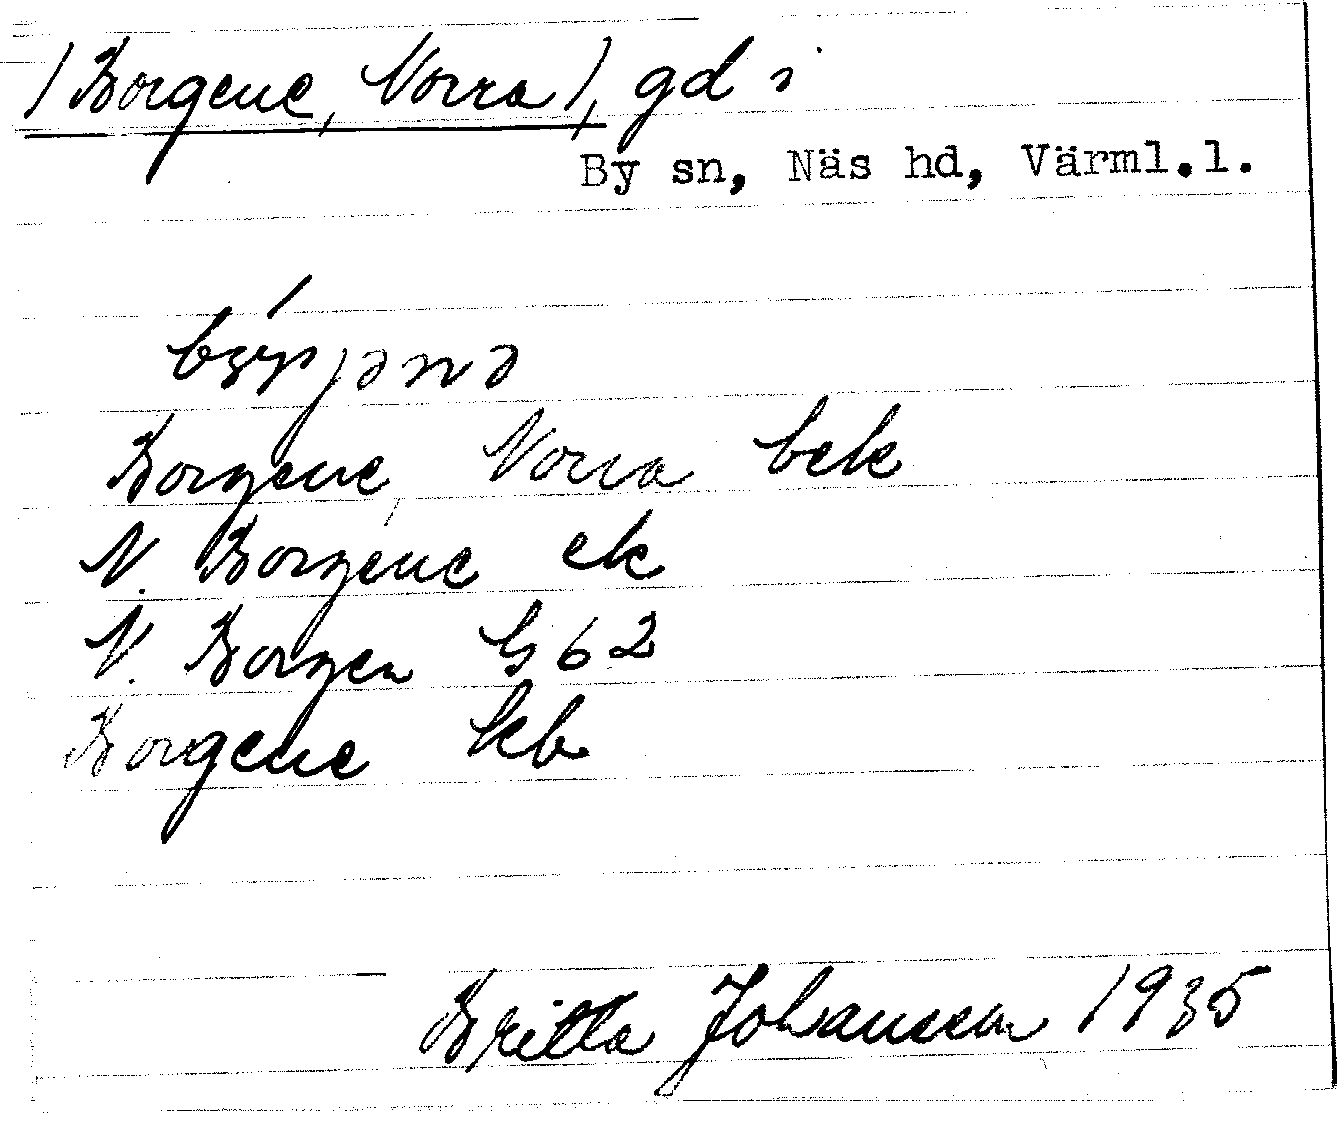 /Borgene, Norra/, gd i
By sn, Näs hd, Värml.l.
Borgene, Norra bek
N. Borgene ek
N. Borgen G 62
Borgene kb
Britta Johansson 1935